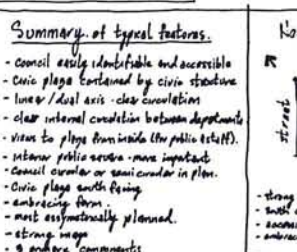 Summary of typical features.
- council easily identifiable and accessible
- civic plaza contained by civic structure
- linear/dual axis - clear circulation
- clear internal circulation between departments
- views to plaza from inside (for public & staff).
- interior public square - more important
- council circular or semi circular in plan.
- Civic plaza south facing
- embracing form.
- most assymetrically planned.
- strong image
components
street
- strong
- south
- embrac